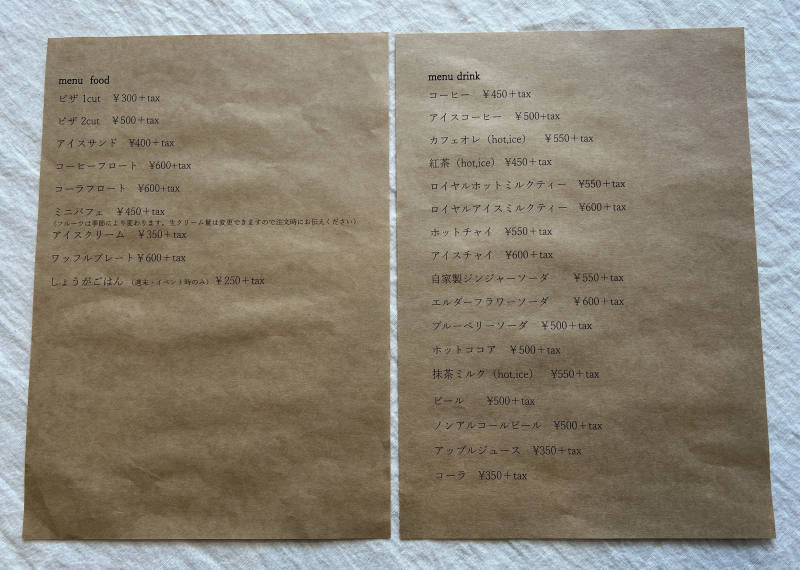 menu food
ピザ 1cut ￥300＋tax
ピザ 2cut ￥500＋tax
アイスサンド ¥400＋tax
コーヒーフロート ¥600+tax
コーラフロート ¥600+tax
ミニパフェ ￥450＋tax
（フルーツは季節により変わります。生クリーム量は変更できますので注文時にお伝えください）
アイスクリーム ￥350＋tax
ワッフルプレート￥600＋tax
しょうがごはん （週末・イベント時のみ）￥250＋tax
menu drink
コーヒー ￥450＋tax
アイスコーヒー ￥500+tax
カフェオレ（hot,ice） ￥550＋tax
紅茶（hot,ice）￥450＋tax
ロイヤルホットミルクティー ¥550＋tax
ロイヤルアイスミルクティー ¥600＋tax
ホットチャイ ¥550＋tax
アイスチャイ ¥600＋tax
自家製ジンジャーソーダ ￥550＋tax
エルダーフラワーソーダ ￥600＋tax
ブルーベリーソーダ ￥500＋tax
ホットココア ￥500＋tax
抹茶ミルク（hot,ice） ¥550＋tax
ビール ¥500＋tax
ノンアルコールビール ¥500＋tax
アップルジュース ¥350＋tax
コーラ ¥350＋tax